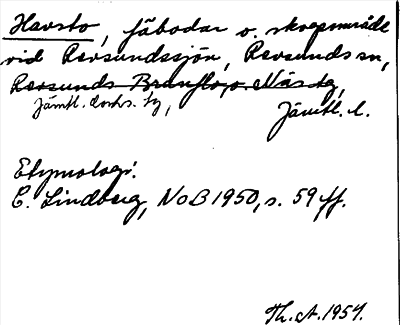 Havsto, fäbodar o. skogsområde
vid Revsundssjön, Revsunds sn,
Revsunds Brunflo, o. Näs tg,
Jämtl. dorhs. tg, Jämtl. l.
Etymologi:
C. Lindberg, NoB 1950, s. 59 ff.
Th. A. 1954.